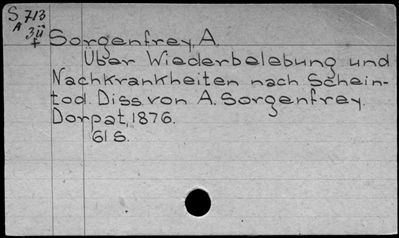 S 713
A 3ii
+ Sorgenfrey, A.
Über Wiederbelebung und
Nachkrankheiten nach Schein-
tod. Diss. von A. Sorgenfrey.
Dorpat, 1876.
61 S.